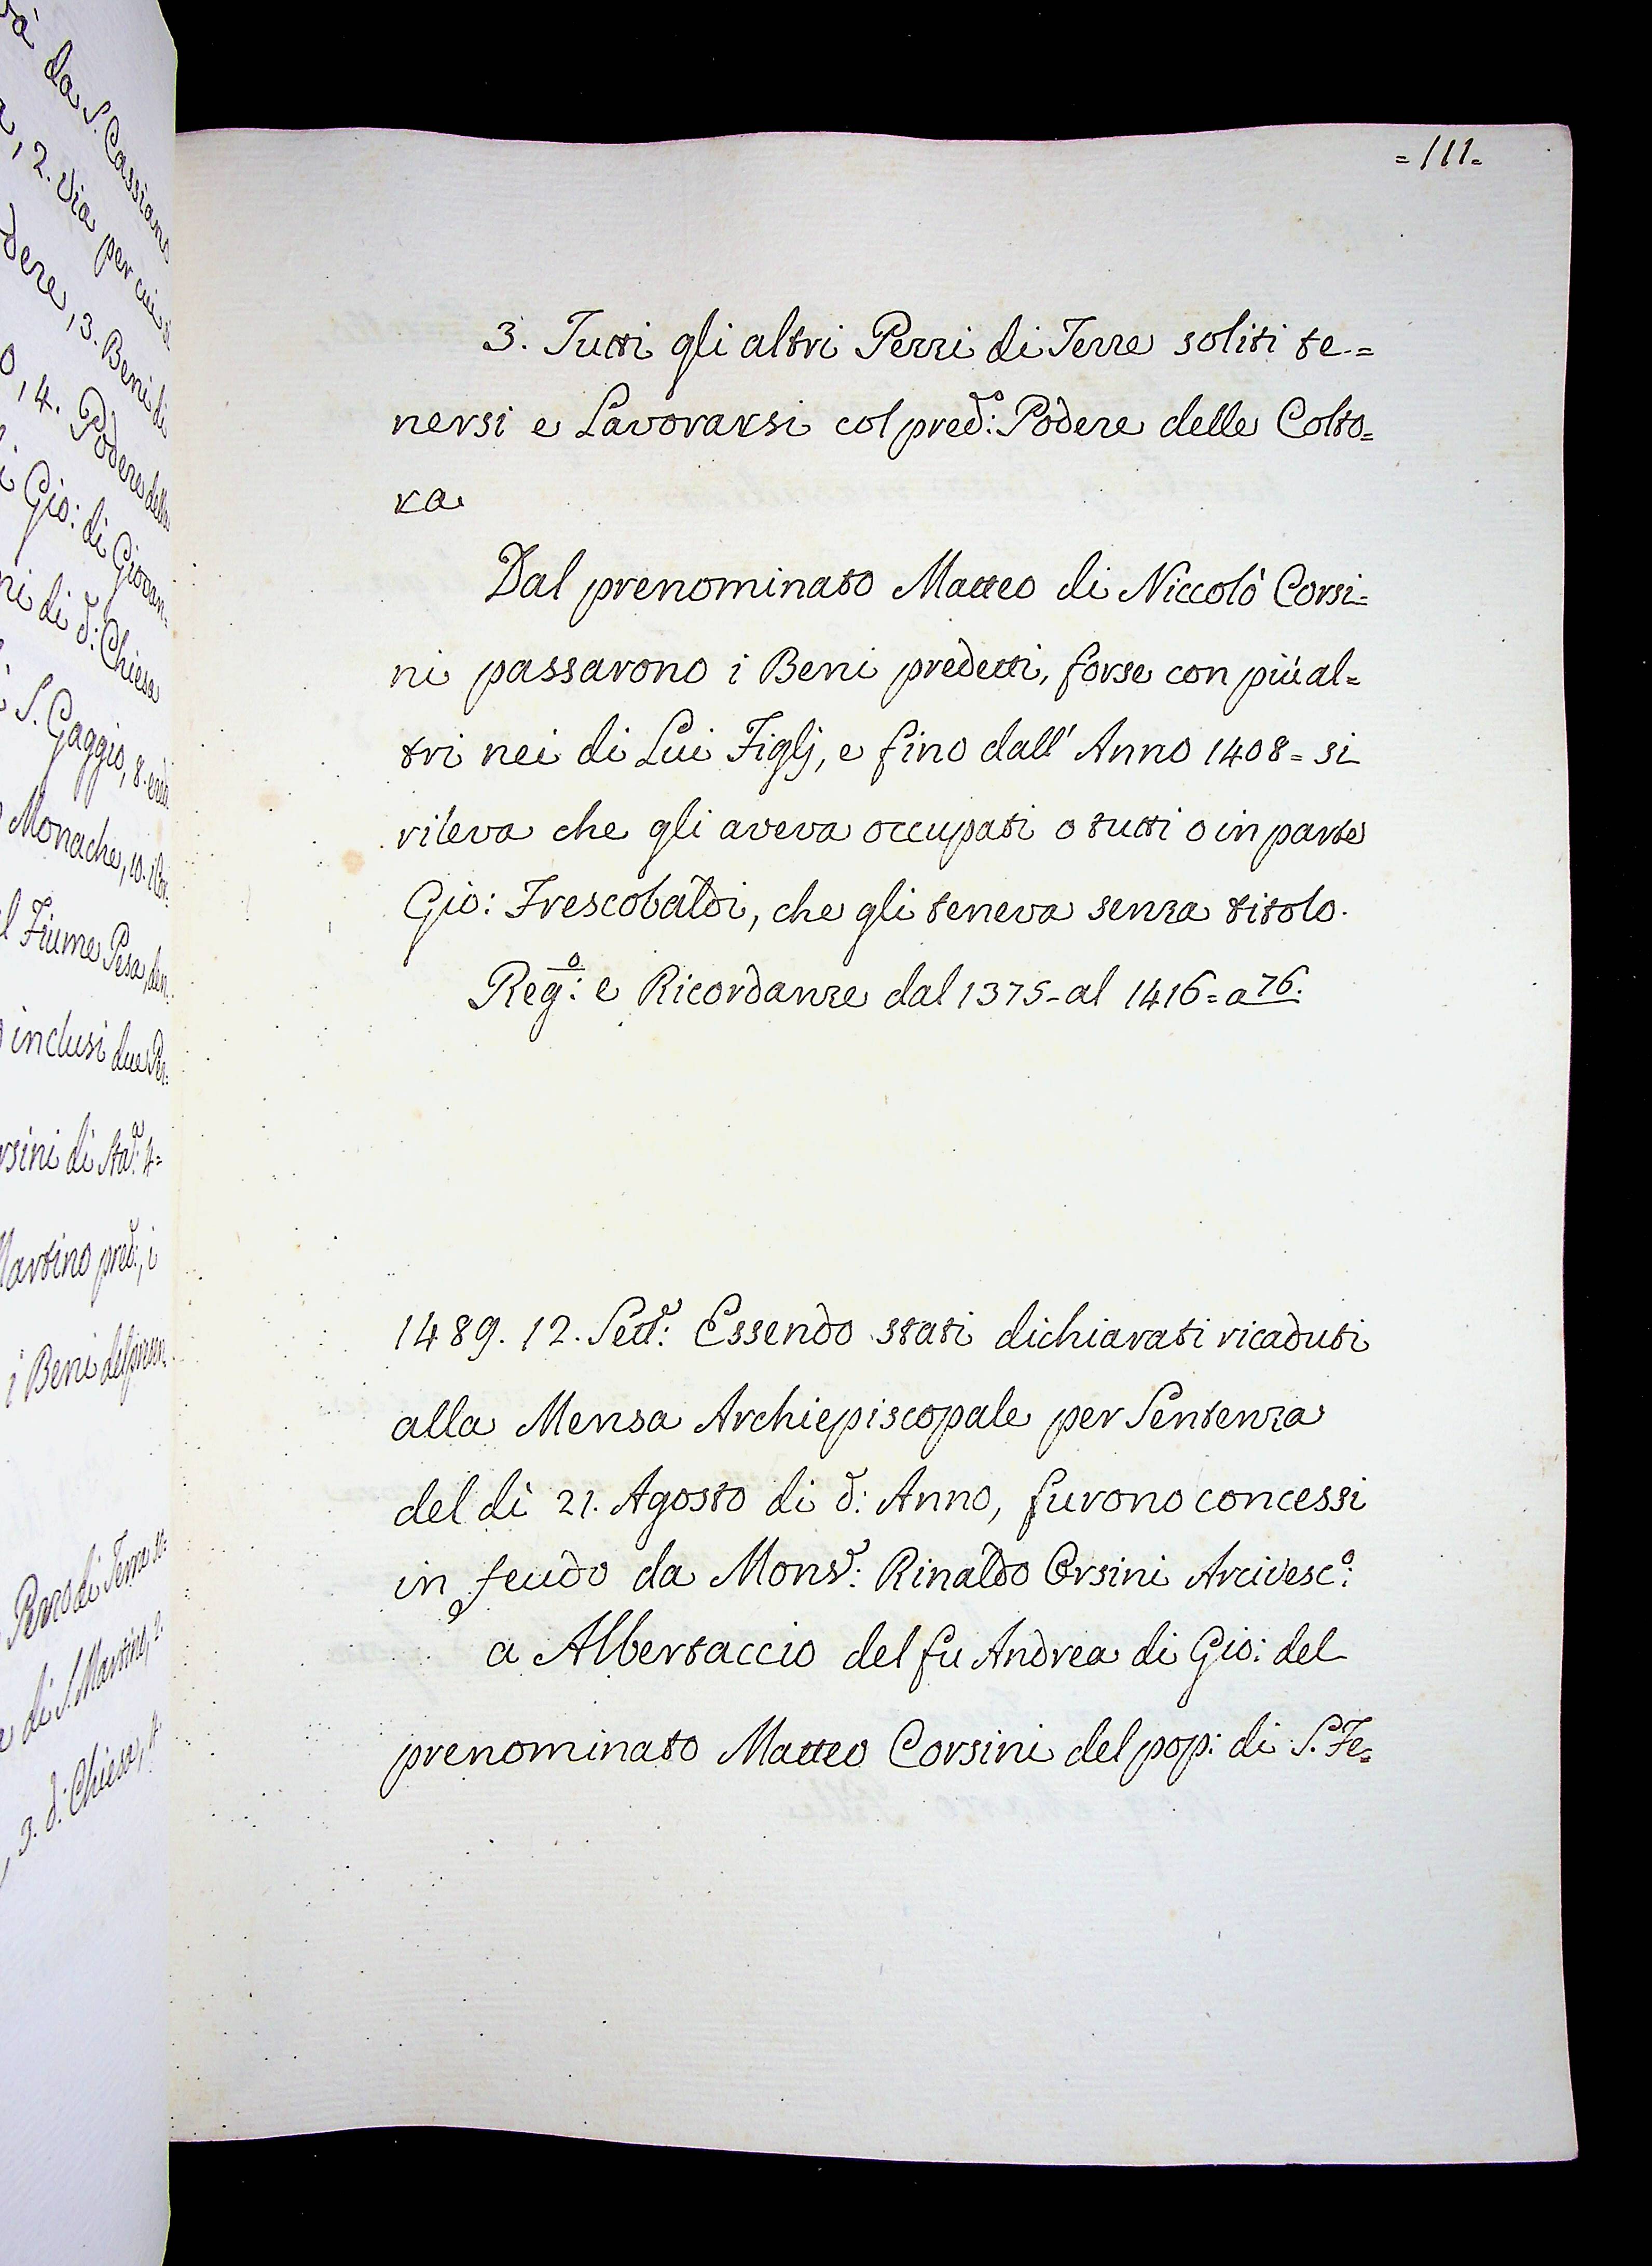 =111=
3. Tutti gli altri Pezzi di Terre soliti te-=
nersi e Lavorarsi col pred:º Podere delle Colto=
ra
Dal prenominato Matteo di Niccolò Corsi=
ni passarono i Beni predetti, forse con più al=
tri nei di Lui Figlj, e fino dall' Anno 1408= si
rileva che gli aveva occupati o tutti o in parte
Gio: Frescobaldi, che gli teneva senza titolo.
Reg:º e Ricordanze dal 1375- al 1416= a 76.
1489. 12. Sett:e Essendo stati dichiarati ricaduti
alla Mensa Archiepiscopale per Sentenza
del dì 21. Agosto di d: Anno, furono concessi
in feudo da Mons:r Rinaldo Orsini Arcivesc:º
a Albertaccio del fu Andrea di Gio: del
prenominato Matteo Corsini del pop: di S. Fe=
da S. Cassiano
, 2. Via per cui
dere, 3. Beni di
, 4. Podere della
Gio: di Giovan=
ni di d: Chiesa
S. Gaggio, 8.
Monache, 10.
Fiume Pesa,
inclusi due Pez=
rsini di Sta:a 4=
Martino pred:, i
i Beni del
Pezzo di Terra
di S. Martino, 2.
, 3. d: Chiesa, 4.